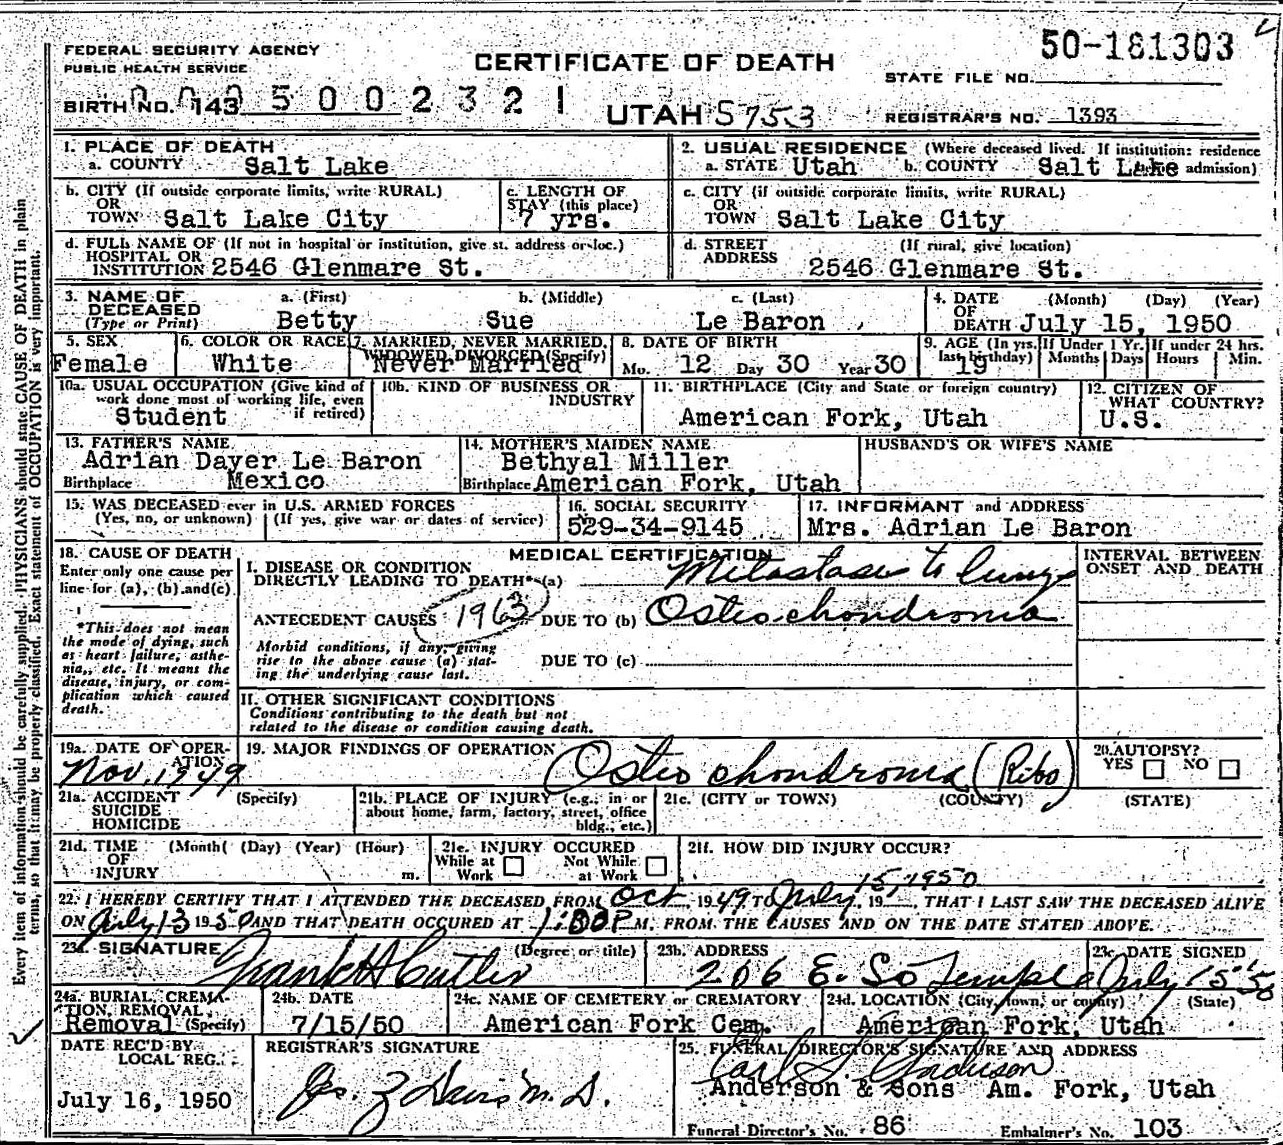 FEDERAL SECURITY AGENCY
PUBLIC HEALTH SERVICE
CERTIFICATE OF DEATH
50-181303
STATE FILE NO.
BIRTH NO. 143 5002321
UTAH S753
REGISTRAR'S NO. 1393
1. PLACE OF DEATH
a. COUNTY Salt Lake
2. USUAL RESIDENCE (Where deceased lived. If institution: residence
a. STATE Utah b. COUNTY Salt Lake admission)
b. CITY (If outside corporate limits, write RURAL)
OR
TOWN Salt Lake City
c. LENGTH OF
STAY (this place)
7 yrs.
c. CITY (if outside corporate limits, write RURAL)
OR
TOWN Salt Lake City
d. FULL NAME OF (If not in hospital or institution, give st. address or loc.)
HOSPITAL OR
INSTITUTION 2546 Glenmare St.
d. STREET (If rural, give location)
ADDRESS
2546 Glenmare St.
3. NAME OF DECEASED a. (First) b. (Middle) c. (Last)
(Type or Print) Betty Sue Le Baron
4. DATE (Month) (Day) (Year)
OF
DEATH July 15, 1950
5. SEX
Female
6. COLOR OR RACE
White
7. MARRIED, NEVER MARRIED,
WIDOWED, DIVORCED (Specify)
Never Married
8. DATE OF BIRTH
Mo. 12 Day 30 Year 30
9. AGE (In yrs. last birthday)
19
If Under 1 Yr.
Months Days
If under 24 hrs.
Hours Min.
10a. USUAL OCCUPATION (Give kind of
work done most of working life, even
if retired)
Student
10b. KIND OF BUSINESS OR
INDUSTRY
11. BIRTHPLACE (City and State or foreign country)
American Fork, Utah
12. CITIZEN OF
WHAT COUNTRY?
U.S.
13. FATHER'S NAME
Adrian Dayer Le Baron
Birthplace Mexico
14. MOTHER'S MAIDEN NAME
Bethyal Miller
Birthplace American Fork, Utah
HUSBAND'S OR WIFE'S NAME
15. WAS DECEASED ever in U.S. ARMED FORCES
(Yes, no, or unknown) (If yes, give war or dates of service)
16. SOCIAL SECURITY
529-34-9145
17. INFORMANT and ADDRESS
Mrs. Adrian Le Baron
18. CAUSE OF DEATH
Enter only one cause per
line for (a), (b) and (c)
*This does not mean
the mode of dying, such
as heart failure, asthe-
nia, etc. It means the
disease, injury, or com-
plication which caused
death.
MEDICAL CERTIFICATION
INTERVAL BETWEEN
ONSET AND DEATH
I. DISEASE OR CONDITION
DIRECTLY LEADING TO DEATH* (a) Metastases to lungs
ANTECEDENT CAUSES 1963 DUE TO (b) Osteochondroma
Morbid conditions, if any, giving
rise to the above cause (a) stat-
ing the underlying cause last.
DUE TO (c)
II. OTHER SIGNIFICANT CONDITIONS
Conditions contributing to the death but not
related to the disease or condition causing death.
19a. DATE OF OPER-
ATION
Nov. 1949
19. MAJOR FINDINGS OF OPERATION
Osteo chondroma (Ribs)
20. AUTOPSY?
YES NO
21a. ACCIDENT (Specify)
SUICIDE
HOMICIDE
21b. PLACE OF INJURY (e.g.: in or
about home, farm, factory, street, office
bldg., etc.)
21c. (CITY or TOWN) (COUNTY) (STATE)
21d. TIME (Month( (Day) (Year) (Hour)
OF
INJURY m.
21e. INJURY OCCURED
While at Work Not While at Work
21f. HOW DID INJURY OCCUR?
22. I HEREBY CERTIFY THAT I ATTENDED THE DECEASED FROM Oct 1949 TO July 15, 1950, 19 , THAT I LAST SAW THE DECEASED ALIVE
ON July 13 1950 AND THAT DEATH OCCURED AT 1:00 P M. FROM THE CAUSES AND ON THE DATE STATED ABOVE.
23a. SIGNATURE (Degree or title)
Frank H Cutler
23b. ADDRESS
206 E. So Temple
23c. DATE SIGNED
July 15-50
24a. BURIAL, CREMA-
TION, REMOVAL,
Removal (Specify)
24b. DATE
7/15/50
24c. NAME OF CEMETERY or CREMATORY
American Fork Cem.
24d. LOCATION (City, town, or county) (State)
American Fork, Utah
DATE REC'D BY
LOCAL REG.
July 16, 1950
REGISTRAR'S SIGNATURE
Jos. Z Davis M.D.
25. FUNERAL DIRECTOR'S SIGNATURE AND ADDRESS
Earl S. Anderson
Anderson & Sons Am. Fork, Utah
Funeral Director's No. 86 Embalmer's No. 103
Every item of information should be carefully supplied. PHYSICIANS should state CAUSE OF DEATH in plain
terms, so that it may be properly classified. Exact statement of OCCUPATION is very important.